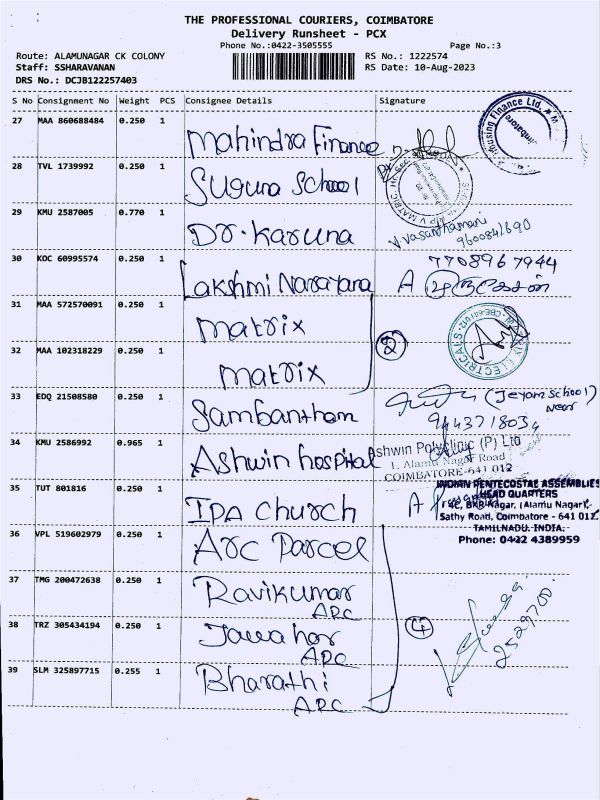 THE PROFESSIONAL COURIERS, COIMBATORE
Delivery Runsheet - PCX
Phone No.:0422-3505555 Page No.:3
Route: ALAMUNAGAR CK COLONY RS No.: 1222574
Staff: SSHARAVANAN RS Date: 10-Aug-2023
DRS No.: DCJB122257403
S No Consignment No Weight PCS Consignee Details Signature
27 MAA 860688484 0.250 1 Mahindra Finance
28 TVL 1739992 0.250 1 Suguna School
29 KMU 2587005 0.770 1 Dr. Karuna V Vasanthamani
9600841690
30 KOC 60995574 0.250 1 Lakshmi Narayana 7708967944
31 MAA 572570091 0.250 1 Matrix
32 MAA 102318229 0.250 1 Matrix ②
33 EDQ 21508580 0.250 1 Sambantham (Jeyam School)
Near
9443718034
34 KMU 2586992 0.965 1 Ashwin hospital
Ashwin Polyclinic (P) Ltd
1, Alamu Nagar Road
COIMBATORE-641 012
35 TUT 801816 0.250 1 IPA Church
INDIAN PENTECOSTAL ASSEMBLIES
HEAD QUARTERS
Nagar, (Alamu Nagar)
Sathy Road, Coimbatore - 641 012.
TAMILNADU. INDIA.
Phone: 0422 4389959
36 VPL 519602979 0.250 1 Arc Parcel
37 TMG 200472638 0.250 1 Ravikumar
ARC
38 TRZ 305434194 0.250 1 Jawahar
ARC ④
39 SLM 325897715 0.255 1 Bharathi
ARC